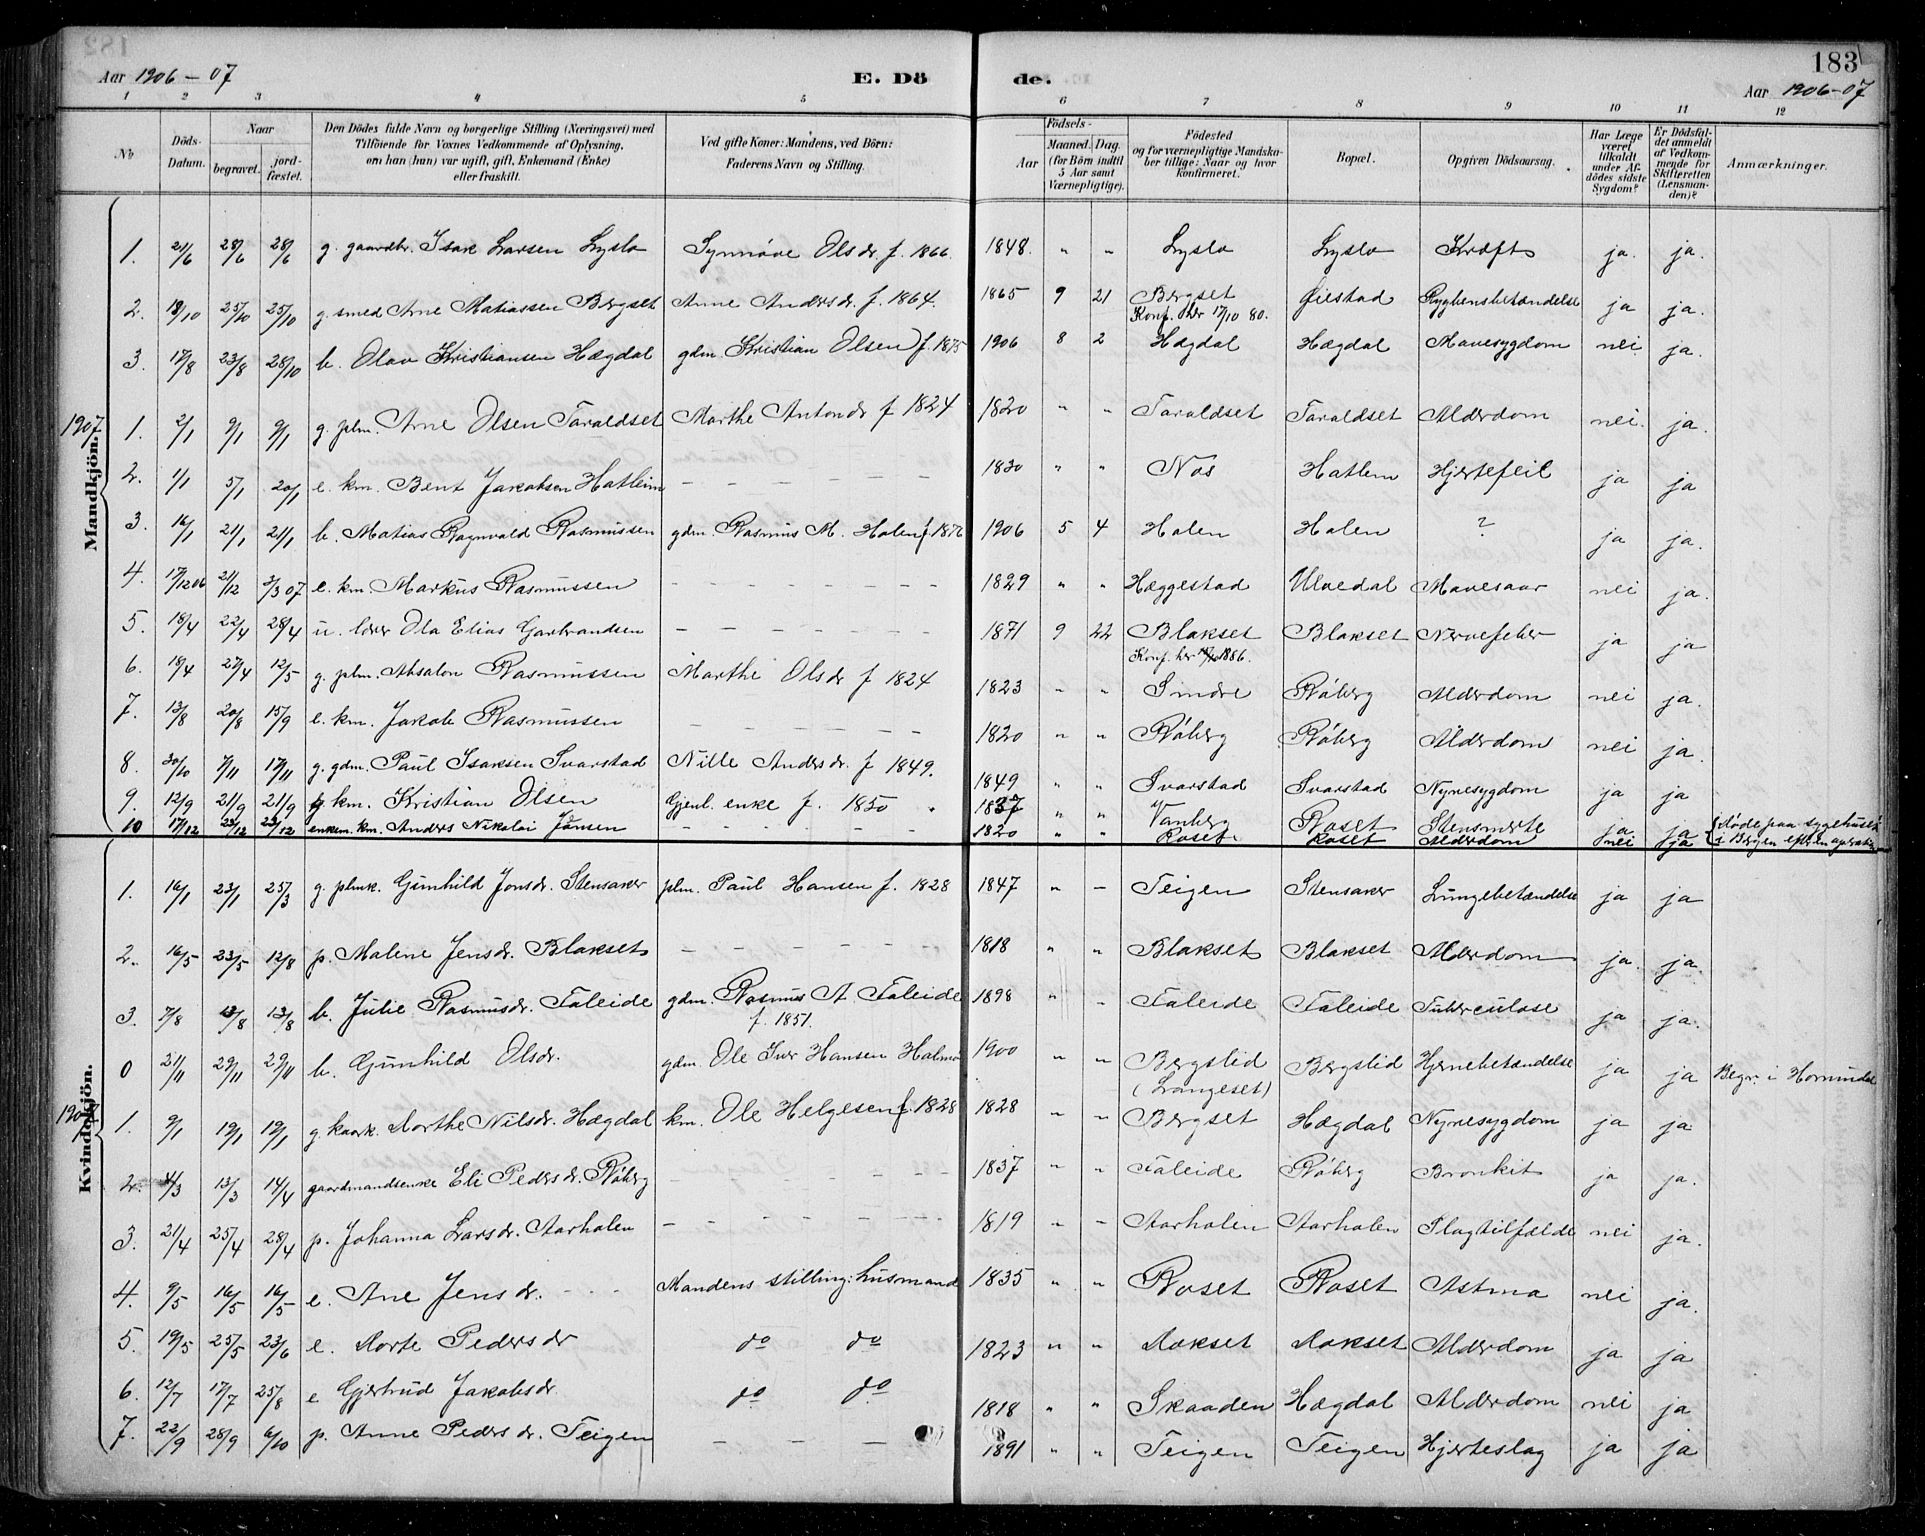 182
183
Aar 1906 - 07
E. Dö
de.
Aar 1906-07
1 2 3 4 5 6 7 8 9 10 11 12
No
Döds-Datum.
Naar
begravet.
jordfæstet.
Den Dödes fulde Navn og borgerlige Stilling (Næringsvei) med
Tilföiende for Voxnes Vedkommende af Oplysning,
om han (hun) var ugift, gift, Enkemand (Enke)
eller fraskilt.
Ved gifte Koner: Mandens, ved Börn:
Faderens Navn og Stilling.
Födsels-
Aar
Maaned. (for Börn indtil 5 Aar samt Værnepligtige).
Dag.
Födested
og for værnepligtige Mandskaber tillige: Naar og hvor konfirmeret.
Bopæl.
Opgiven Dödsaarsag.
Har Læge været tilkaldt under Afdödes sidste Sygdom?
Er Dödsfaldet anmeldt af Vedkommende for Skifteretten (Lensmanden)?
Anmærkninger.
Mandkjön.
1. 21/6 28/6 28/6 g. gaardbr. Isak Larsen Lyslo Synnöve Olsdr. f. 1866. 1848. " " Lyslo Lyslo Kræft ja. ja.
2. 18/10 25/10 25/10 g. smed Arne Matiassen Bergset Anne Andersdr. f. 1864. 1865 9 21 Bergset Øiestad Rygbensbetændelse ja ja.
Konf. her 17/10 80.
3. 17/8 23/8 28/10 b. Olav Kristiansen Hægdal gdm. Kristian Olsen f. 1875 1906 8 2 Hægdal Hægdal Mavesygdom nei ja.
1907
1. 2/1 9/1 9/1 g. plm. Arne Olsen Taraldset Marthe Antondr f 1824 1820 " " Taraldset Taraldset Alderdom nei. ja.
2. 1/1 5/1 20/1 e. km. Bent Jakobsen Hatlem - - - - - - 1830 " " Nos Hatlem Hjertefeil ja ja
3. 16/1 21/1 21/1 b. Matias Ragnvald Rasmussen gdm. Rasmus M. Holen f. 1876 1906 5 4 Holen Holen ? ja ja.
4. 17/12 06 21/12 3/3 07 e. km. Markus Rasmussen - - - - - - - 1829 " " Hæggestad Ulvedal Mavesaar nei ja.
5. 18/4 22/4 28/4 u. lærer Ola Elias Garbrandsen - - - - - - - 1871 9 22 Blakset Blakset Nervefeber ja ja
Konf. her 1886.
6. 18/4 27/4 12/5 g. plm. Absalon Rasmussen Marthe Olsdr f 1824 1823 " " Sindre Röberg Alderdom nei ja.
7. 13/8 20/8 15/9 e. km. Jakob Rasmussen - - - - - - 1820 " " Röberg Röberg Alderdom nei ja.
8. 30/10 7/11 17/11 g. gdm. Paul Isaksen Svarstad Nille Andersdr. f 1849. 1849 " " Svarstad Svarstad Nyresygdom ja ja
9. 12/9 21/9 21/9 g km. Kristian Olsen Gjenl. enke f. 1850 1837 " " Vanberg Roset Stensmerte ja ja Döde paa sygehuset
10 17/12 23/12 23/12 enkem. km. Anders Nikolai Jonsen - - - - - - 1820 " " Roset Roset Alderdom nei ja i Bergen efter en operation
Kvindekjön.
1. 16/1 23/1 25/3 g. plmk. Gunhild Jonsdr. Stensaker plm. Paul Hansen f. 1828 1847 " - Teigen Stensaker Lungebetændelse ja ja
2. 16/5 23/5 12/8 p. Malene Jensdr. Blakset - - - - - - 1818 " " Blakset Blakset Alderdom ja. ja.
3. 7/8 13/8 13/8 b. Julie Rasmusdr. Faleide gdm. Rasmus A Faleide 1898 " " Faleide Faleide Tuberculose ja ja.
f. 1851.
0 21/11 29/11 29/11 b. Gunhild Olsdr. gdm. Ole Iver Hansen 1900 " " Bergslid Bergslid Hjernebetændelse ja ja Begr. i Hornindal
(Langeset)
1907
1. 9/1 19/1 19/1 g. Dorthe Nilsdr. Hægdal km. Ole Helgesen f. 1828 1828 " " Bergset Hægdal Nyresygdom ja ja
2. 4/3 13/3 14/4 gaardmandsenke Eli Pedersdr. Röberg - - - - - - 1837 " " Faleide Röberg Bronkit ja ja.
3. 21/4 25/4 28/4 p. Johanna Larsdr. Aarholen - - - - - - 1819 " - Aarholen Aarholen Slagtilfælde nei ja.
4. 9/5 16/5 16/5 e. Ane Jensdr. - - - Mandens stilling: husmand 1835 " " Roset Roset Astma nei ja.
5. 19/5 25/5 23/6 e. Dorte Pedersdr do do 1823 " " Lokset Lokset Alderdom ja ja
6. 12/7 17/7 25/8 e Gjertrud Jakobsdr. do do 1818 " " Skaaden Hægdal Alderdom nei ja
7. 22/9 28/9 6/10 p. Anne Pedersdr. Teigen - - - 1891 " " Teigen Teigen Hjerteslag ja ja